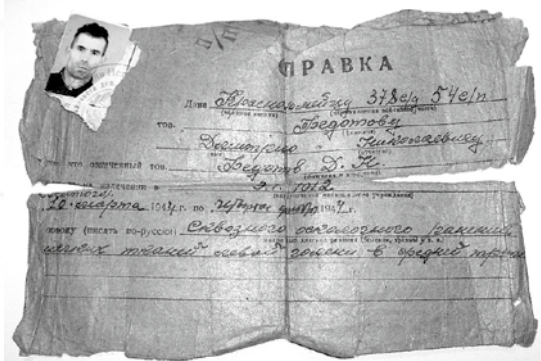 п/п
СПРАВКА
Дана Красноармейцу 378 с/д 54 с/п
тов. Федотову
Дмитрию Николаевичу
что означенный тов. Федотов Д. Н.
на излечении в э.г. 1012
20 марта 194 г. по 194 г.
поводу (писать по-русски) Сквозного осколочного ранения
мягких тканей левой голени в средней трети